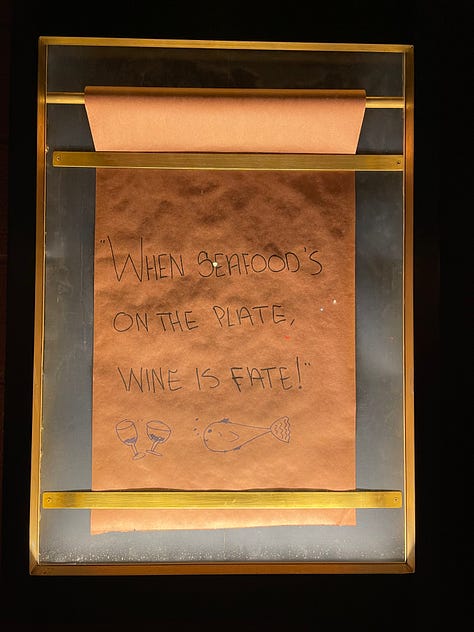 "WHEN SEAFOOD'S
ON THE PLATE,
WINE IS FATE!"